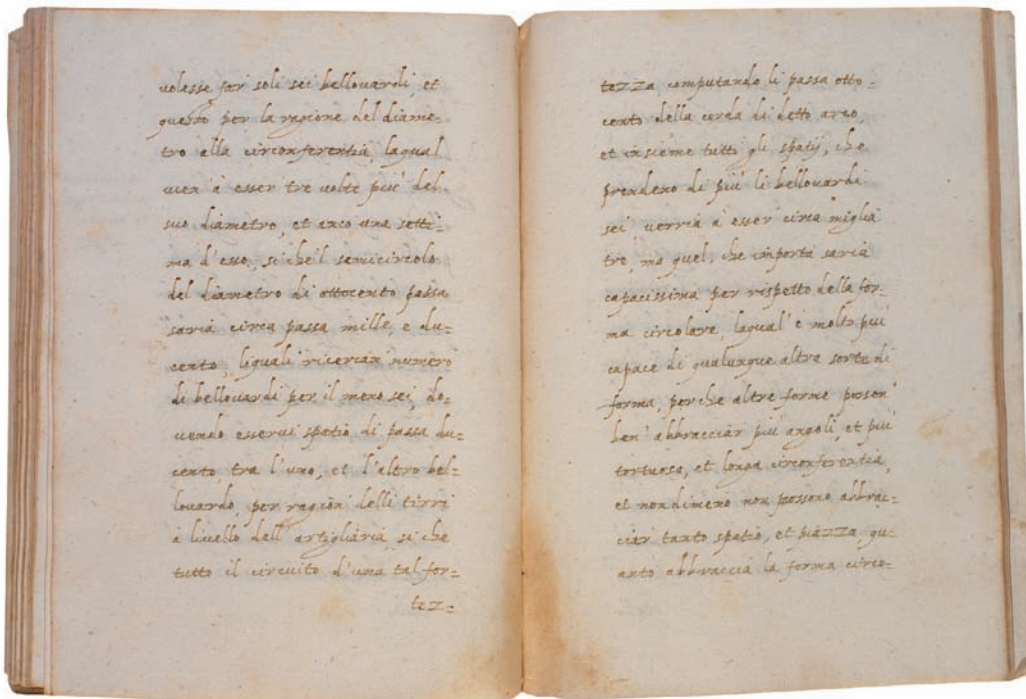 volesse far soli sei bellouardi, et
questo per la ragione del diame=
tro alla circonferentia, laqual
uien à esser tre uolte piu' del
suo diametro, et anco una setti=
ma d'esso, si che'l semicircolo
del diametro di ottocento passa
saria circa passa mille, e du=
cento, liquali ricercan numero
di bellouardi per il meno sei, do=
uendo esserui spatio di passa du=
cento tra l'uno, et l'altro bel=
louardo, per ragion delli tirri
à liuello dell'artigliaria, si che
tutto il circuito d'una tal for=
tez=
tezza computando li passa otto=
cento della corda di detto arco,
et insieme tutti gli spatij, che
prendeno di piu' li bellouardi
sei uerria à esser circa miglia
tre, ma quel, che importa saria
capacissima per rispetto della for=
ma circolare, laqual' è molto piu'
capace di qualunque altra sorte di
forma, perche altre forme posson'
ben' abbracciar piu' angoli, et piu'
tortuosa, et longa circonferentia,
et nondimeno non possono abbrac=
ciar tanto spatio, et piazza, qu=
anto abbraccia la forma circo=